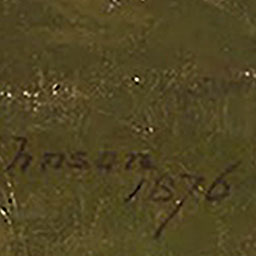 hnson
1876